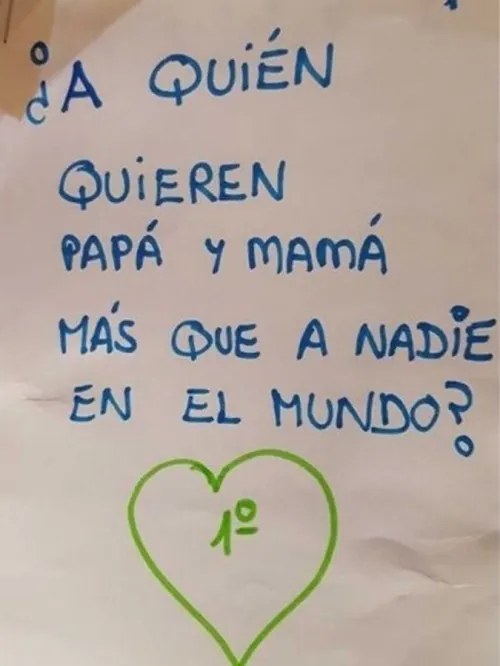 ¿A QUIÉN
QUIEREN
PAPÁ Y MAMÁ
MÁS QUE A NADIE
EN EL MUNDO?
1º